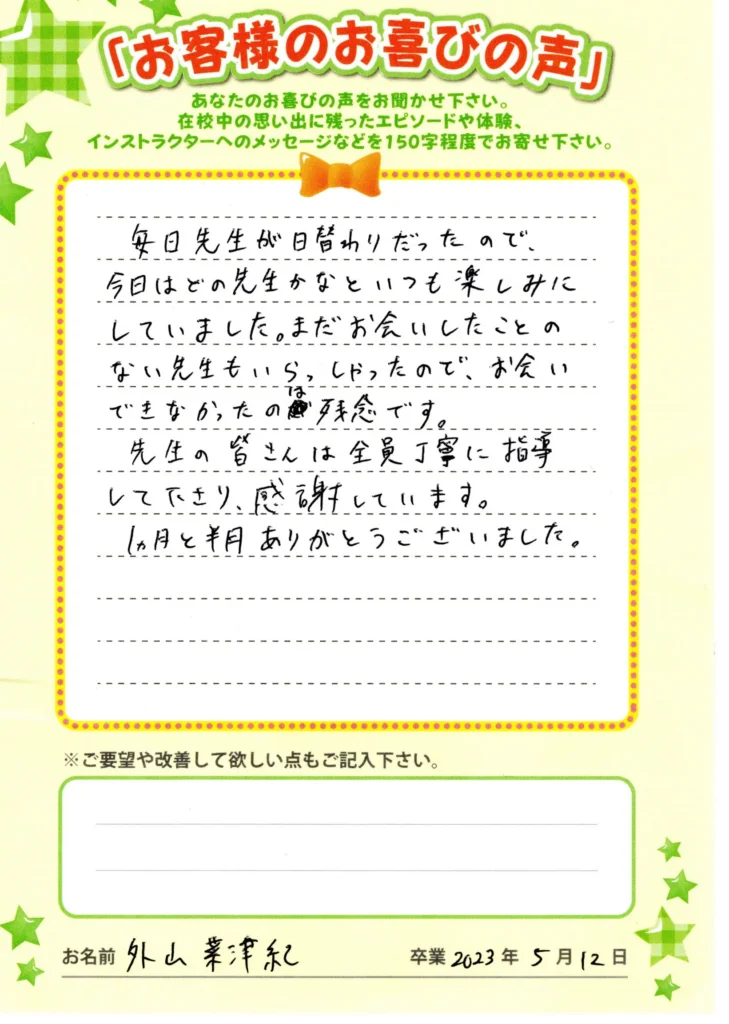 「お客様のお喜びの声」
あなたのお喜びの声をお聞かせ下さい。
在校中の思い出に残ったエピソードや体験、
インストラクターへのメッセージなどを150字程度でお寄せ下さい。
毎日先生が日替わりだったので、
今日はどの先生かなといつも楽しみに
していました。まだお会いしたことの
ない先生もいらっしゃったので、お会い
できなかったのは残念です。
先生の皆さんは全員丁寧に指導
して下さり、感謝しています。
1ヵ月と半月ありがとうございました。
※ご要望や改善して欲しい点もご記入下さい。
お名前 外山 菜津紀 卒業 2023 年 5 月 12 日